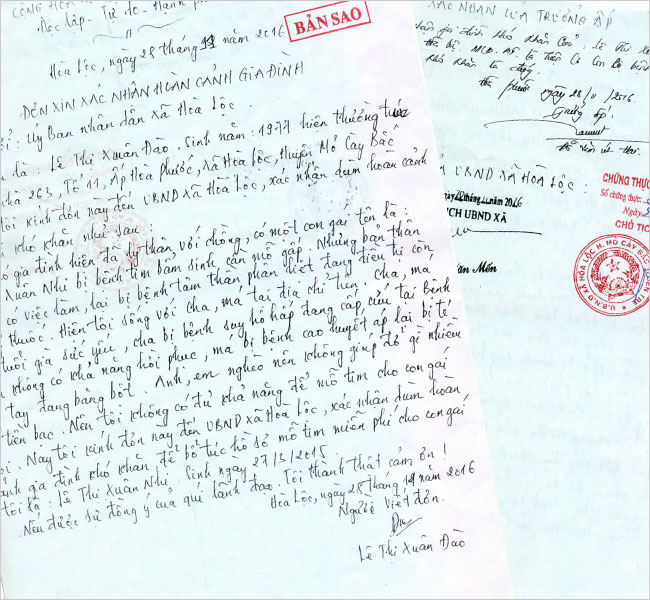 CỘNG HOÀ
Độc lập - Tự do - Hạnh p
Hoà Lộc, ngày 28 tháng 11 năm 2016
BẢN SAO
ĐƠN XIN XÁC NHẬN HOÀN CẢNH GIA ĐÌNH
: Uỷ Ban nhân dân xã Hoà Lộc.
là : Lê Thị Xuân Đào. Sinh năm : 1977 hiện thường
nhà 263, Tổ 11, Ấp Hoà phước, Xã Hoà Lộc, Huyện Mỏ Cày Bắc
tôi kính đơn này đến UBND xã Hoà Lộc, xác nhận dùm hoàn cảnh
khó khăn như sau :
gia đình hiện đã ly thân với chồng, có một con gái tên là :
Xuân Nhi bị bệnh tim bẩm sinh cần mổ gấp. Nhưng bản thân
có việc làm, lại bị bệnh tâm thần phân liệt đang điều trị còn
thuốc. Hiện tôi sống với cha, má tại địa chỉ trên. cha, má
tuổi già sức yếu, cha bị bệnh suy hô hấp đang cấp cứu tại Bệnh
không có khả năng hồi phục, má bị bệnh cao huyết áp lại bị té
tay đang băng bột. Anh, em nghèo nên không giúp đỡ gì nhiều
tiền bạc. Nên tôi không có đủ khả năng để mổ tim cho con gái
Nay tôi kính đơn này đến UBND xã Hoà Lộc, xác nhận dùm hoàn
cảnh gia đình khó khăn, để bổ túc hồ sơ mổ tim miễn phí cho con gái
tôi là : Lê Thị Xuân Nhi. Sinh ngày 27/3/2015
Nếu được sự đồng ý của quí lãnh đạo. Tôi thành thật cảm ơn !
Hoà Lộc, ngày 28 tháng 11 năm 2016
Người viết đơn.
Lê Thị Xuân Đào
XÁC NHẬN CỦA TRƯỞNG ẤP
gia đình khó khăn
28/11/2016
Trưởng ấp.
UBND XÃ HOÀ LỘC :
ngày tháng năm 2016
TỊCH UBND XÃ
Văn Mến
CHỨNG THỰC
Số chứng thực
Ngày
CHỦ TỊCH
U.B.N.D XÃ HÒA LỘC H. MỎ CÀY BẮC